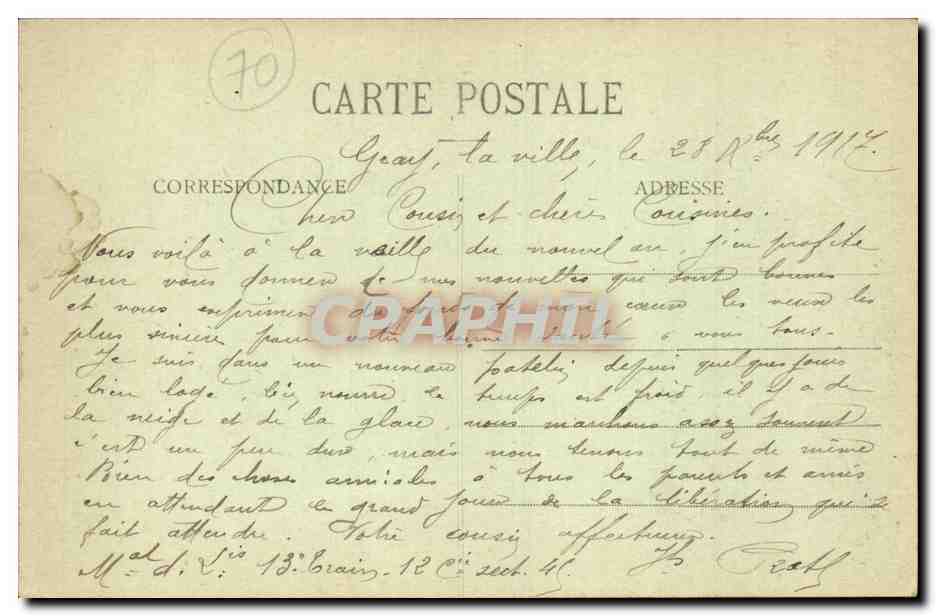 70
CARTE POSTALE
la ville, le 28 Xbre 1917.
CORRESPONDANCE
ADRESSE
Cher Cousin et chères Cousines.
Nous voilà à la veille du nouvel an j'en profite
pour vous donner de mes nouvelles qui sont bonnes
et vous exprimer du fond de mon cœur les vœux les
plus sincère pour votre bonne santé à vous tous.
Je suis dans un nouveau patelin depuis quelques jours
bien logé, bien nourri, le temps est froid, il y a de
la neige et de la glace, nous marchons assez souvent
c'est un peu dur, mais nous tenons tout de même
Bien des choses amicales à tous les parents et amis
en attendant le grand jour de la libération qui se
fait attendre. Votre cousin affectueux.
Mal d. Lis 13e Train. 12 Cie sect. 45
CPAPHIL